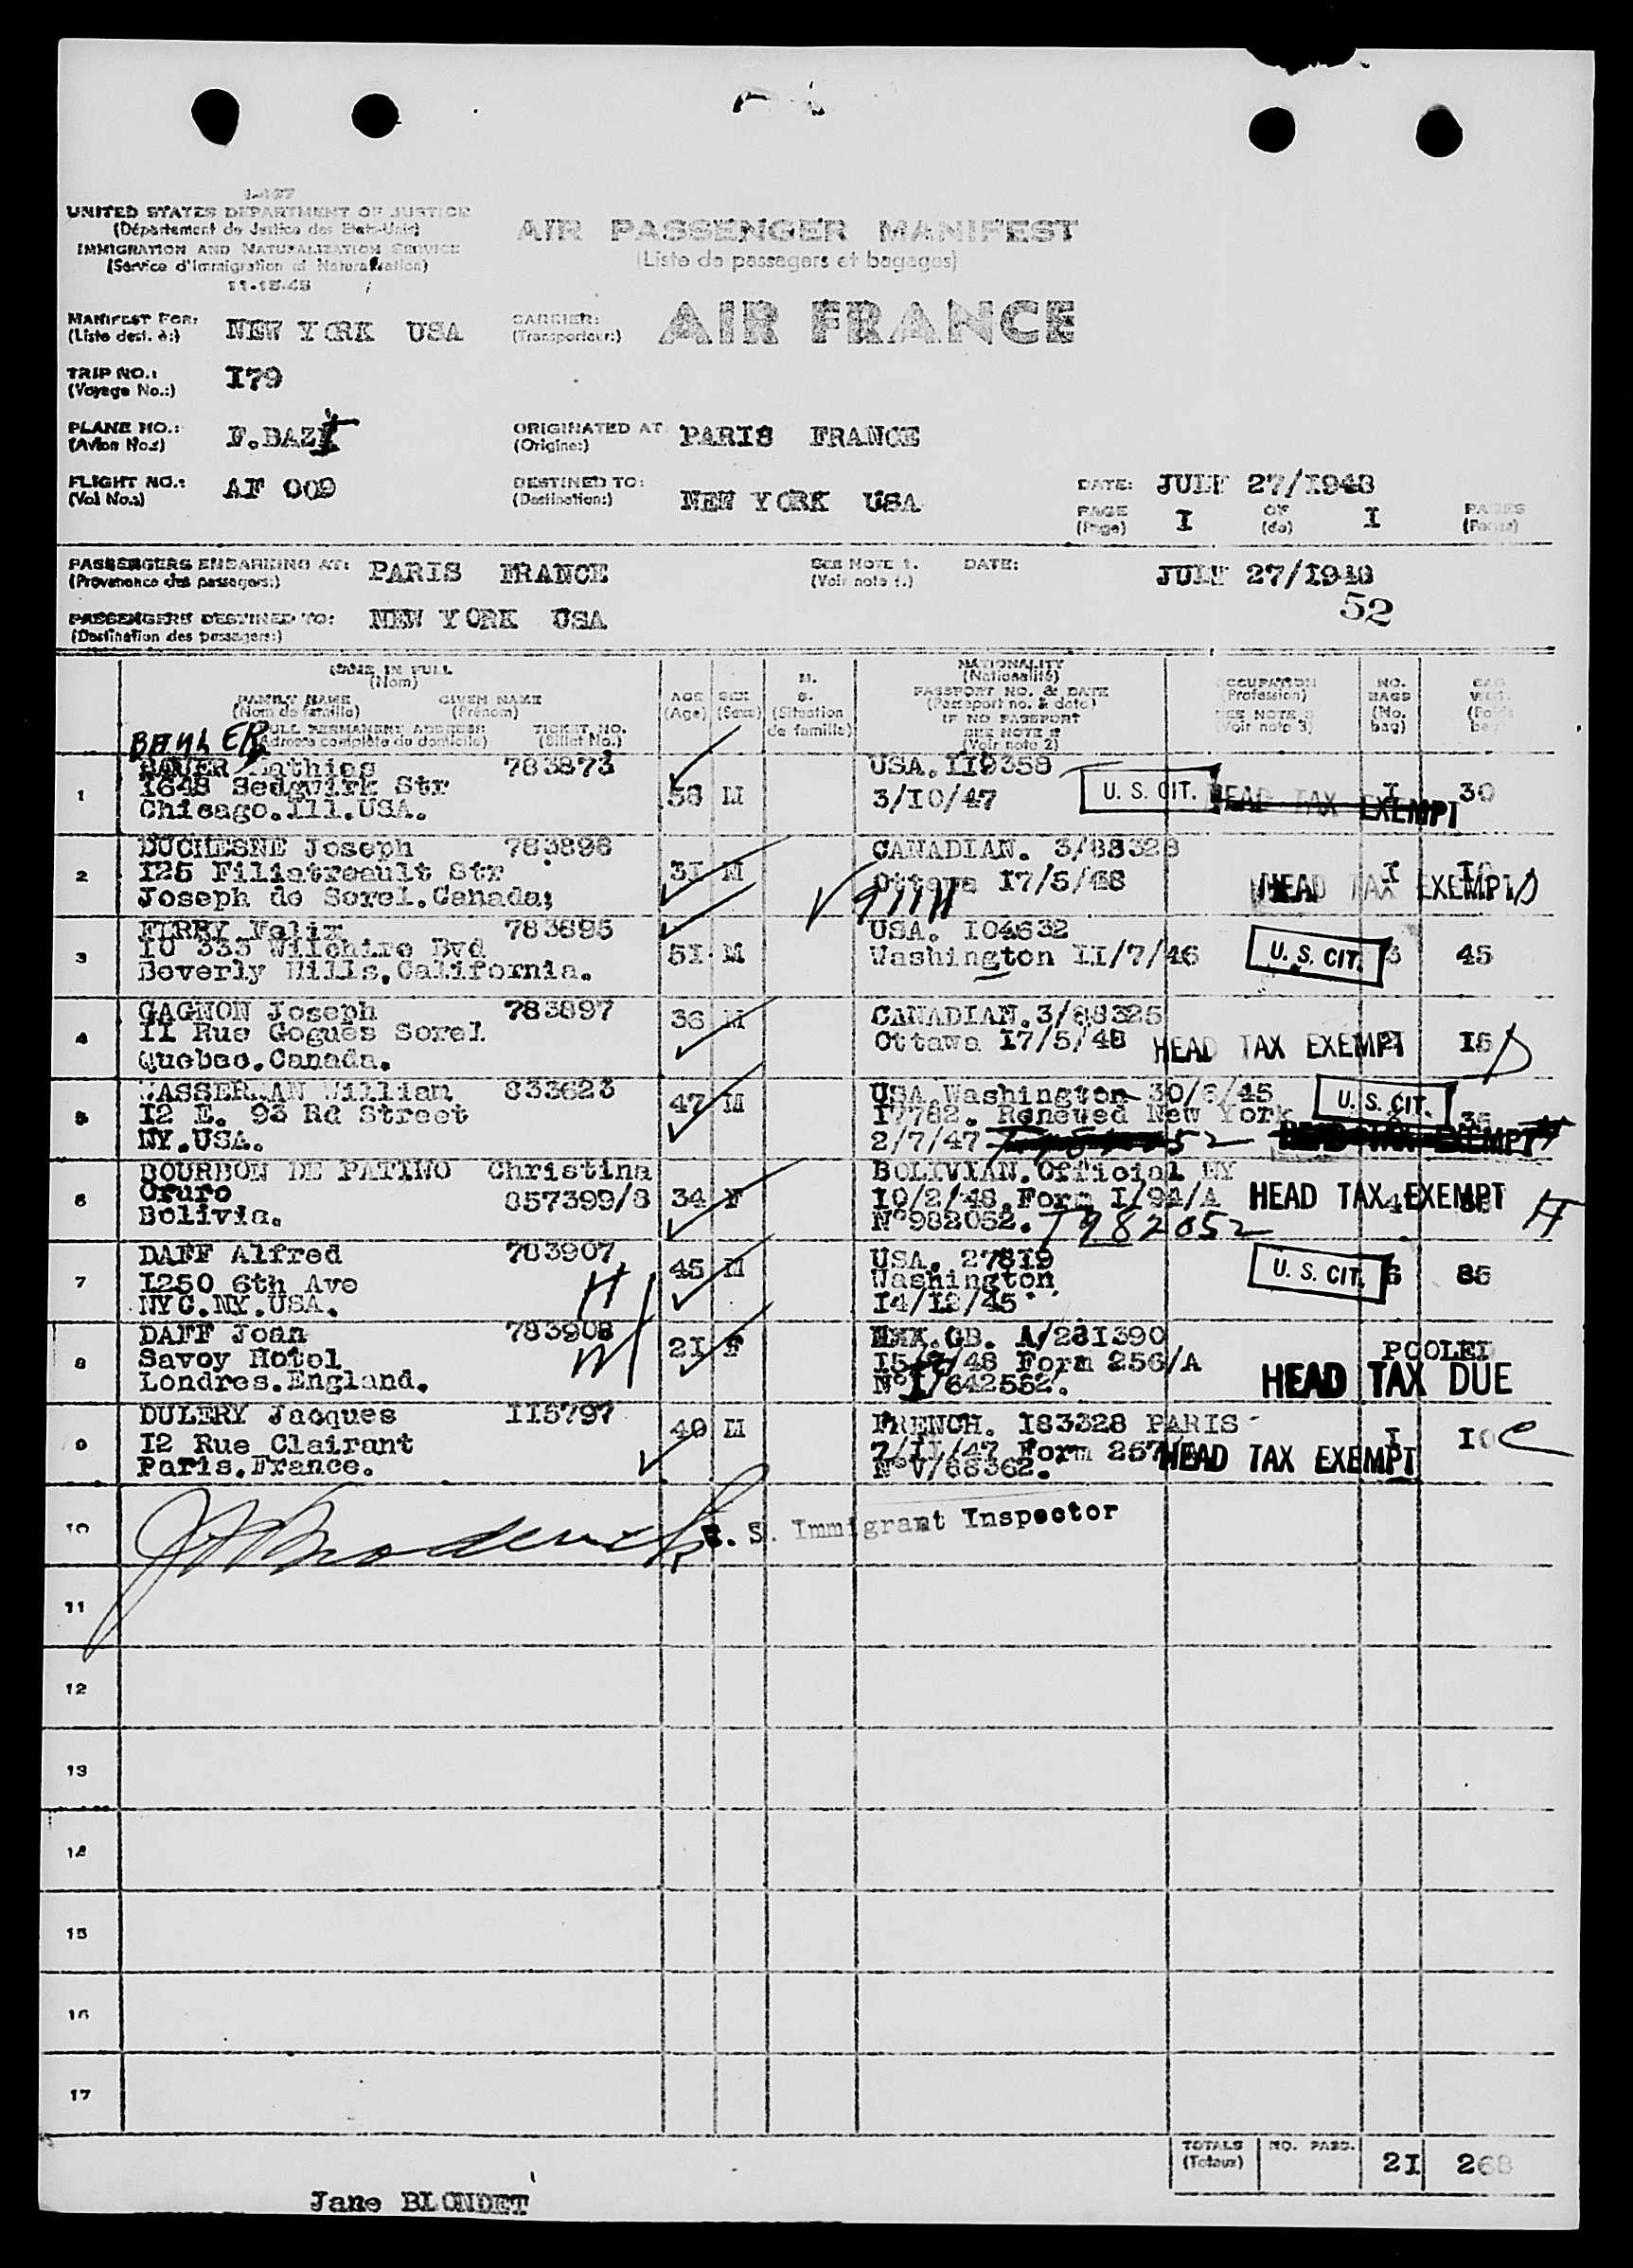 UNITED STATES DEPARTMENT OF JUSTICE
(Département de Justice des Etats-Unis)
IMMIGRATION AND NATURALIZATION SERVICE
(Service d'Immigration et Naturalisation)
11-18-48
AIR PASSENGER MANIFEST
(Liste de passagers et bagages)
MANIFEST FOR: NEW YORK USA
(Liste dest. à:)
CARRIER: AIR FRANCE
(Transporteur:)
TRIP NO.: I79
(Voyage No.:)
PLANE NO.: F.BAZI
(Avion No.:)
ORIGINATED AT: PARIS FRANCE
(Origine:)
FLIGHT NO.: AF 009
(Vol No.:)
DESTINED TO: NEW YORK USA
(Destination:)
DATE: JULY 27/I948
PAGE I OF I PAGES
(Page) (de) (Pages)
PASSENGERS EMBARKING AT: PARIS FRANCE
(Provenance des passagers:)
SEE NOTE 1. DATE: JULY 27/I948
(Voir note 1.)
52
PASSENGERS DESTINED TO: NEW YORK USA
(Destination des passagers:)
NAME IN FULL
(Nom)
FAMILY NAME GIVEN NAME
(Nom de famille) (Prénom)
FULL PERMANENT ADDRESS TICKET NO.
(Adresse complète du domicile) (Billet No.)
AGE SEX M. S.
(Age) (Sexe) (Situation de famille)
NATIONALITY
(Nationalité)
PASSPORT NO. & DATE
(Passeport no. & date)
IF NO PASSPORT
SEE NOTE 2
(Voir note 2)
OCCUPATION
(Profession)
SEE NOTE 3
(Voir note 3)
NO. BAGS
(No. bag)
BAG
1 BAUER Mathias 783873 58 M USA. II9358 I 30
I648 Sedgwirk Str 3/I0/47
Chicago.Ill.USA.
U. S. CIT. HEAD TAX EXEMPT
2 DUCHESNE Joseph 783898 3I M CANADIAN. 3/88328 I I0
I25 Filiatreault Str Ottawa I7/5/48
Joseph de Sorel.Canada;
HEAD TAX EXEMPT
3 FERRY Felix 783895 5I M USA. I04632 3 45
I0 333 Wilchire Bvd Washington II/7/46
Beverly Hills.California.
U. S. CIT.
4 GAGNON Joseph 783897 36 M CANADIAN.3/88325 I6
II Rue Gogues Sorel Ottawa I7/5/48
Quebec.Canada.
HEAD TAX EXEMPT
5 WASSERMAN Willian 833623 47 M USA.Washington 30/6/45 35
I2 E. 93 Rd Street I7782. Renewed New York
NY.USA. 2/7/47
U. S. CIT. HEAD TAX EXEMPT
6 BOURBON DE PATINO Christina BOLIVIAN.Official NY
Oruro 857399/8 34 F I0/2/48.Form I/94/A 4
Bolivia. N°982052. T982052
HEAD TAX EXEMPT H
7 DAFF Alfred 783907 45 M USA. 278I9 6 85
I250 6th Ave Washington
NYC.NY.USA. I4/I2/45
U. S. CIT.
8 DAFF Joan 783908 2I F GB. A/28I390 POOLED
Savoy Hotel I5/7/48 Form 256/A
Londres.England. N°I/642552.
HEAD TAX DUE
9 DULERY Jacques II5797 40 M FRENCH. I83328 PARIS I I0
I2 Rue Clairant 7/II/47 Form 257/A
Paris.France. N°V/68362.
HEAD TAX EXEMPT
10 U. S. Immigrant Inspector
11
12
13
14
15
16
17
TOTALS NO. PASS. 2I 268
(Totaux)
Jane BLONDET